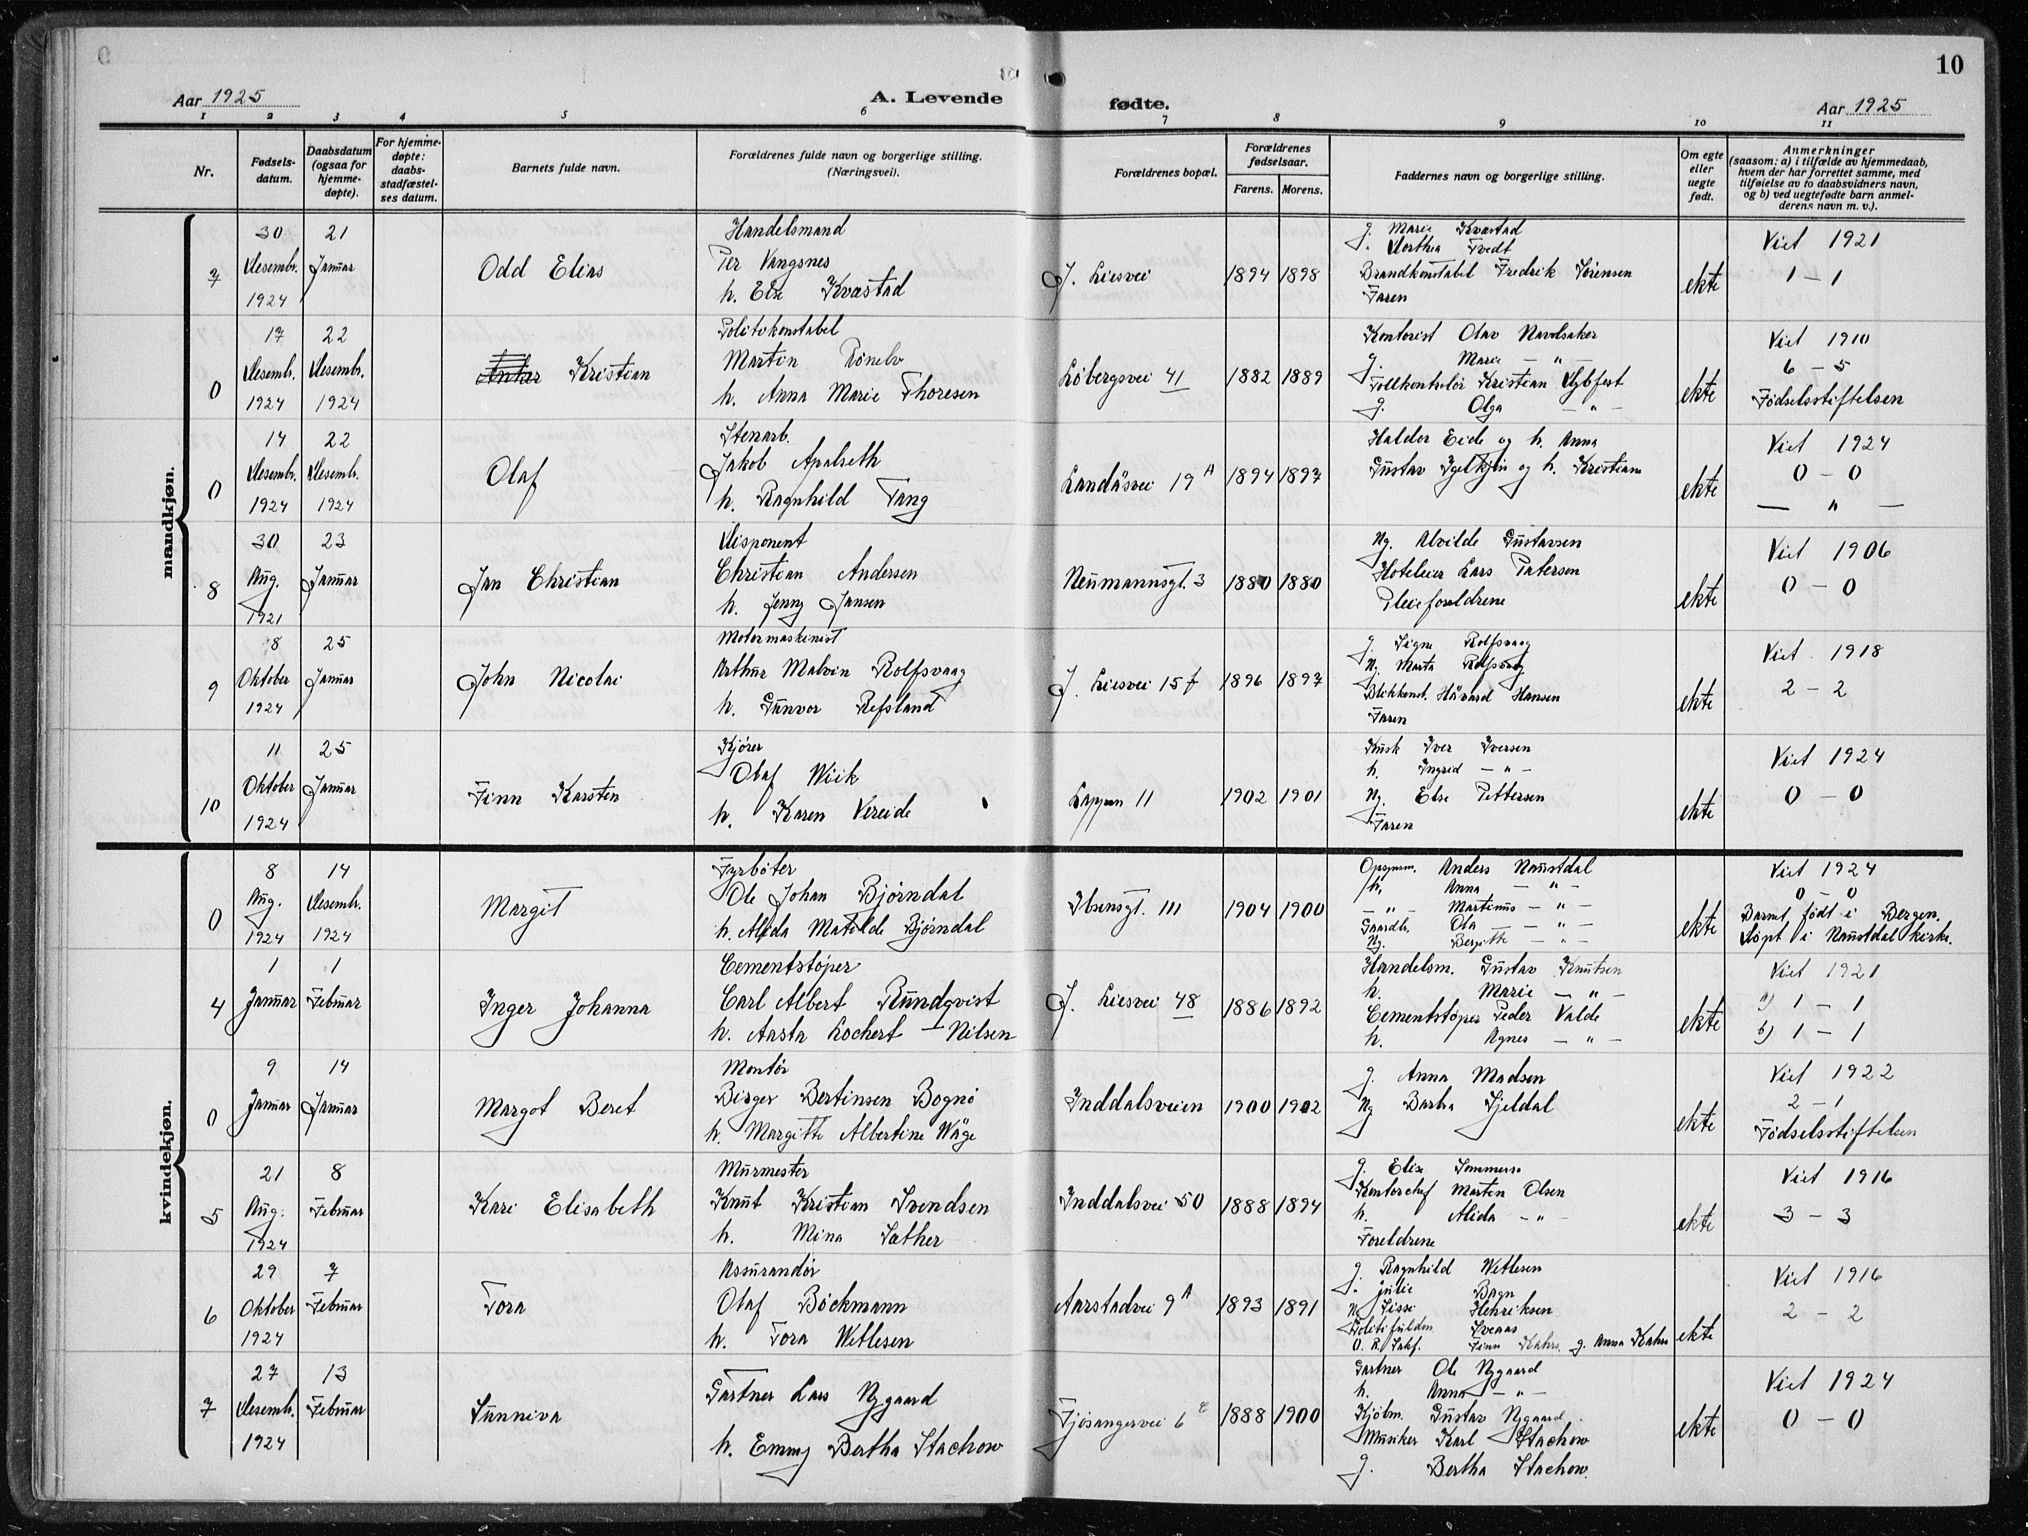 10
Aar 1925
A. Levende
fødte.
Aar 1925
1 2 3 4 5 6 7 8 9 10 11
Nr.
Fødsels-
datum.
Daabsdatum
(ogsaa for
hjemme-
døpte).
For hjemme-
døpte:
daabs-
stadfæstel-
ses datum.
Barnets fulde navn.
Forældrenes fulde navn og borgerlige stilling.
(Næringsvei).
Forældrenes bopæl.
Forældrenes
fødselsaar.
Farens. Morens.
Faddernes navn og borgerlige stilling.
Om egte
eller
uegte
født.
Anmerkninger
(saasom: a) i tilfælde av hjemmedaab,
hvem der har forrettet samme, med
tilføielse av to daabsvidners navn,
og b) ved uegtefødte barn anmel-
derens navn m. v.).
mandkjøn.
7
30
Desembr.
1924
21
Januar
Odd Elias
Handelsmand
Per Vangsnes
h. Else Kvastad
J. Liesvei
1894 1898
g. Marie Kvastad
" Dorthea Tvedt
Brandkonstabel Fredrik Sørensen
Faren
ekte
Viet 1921
1 – 1
0
17
Desembr.
1924
22
Desembr.
1924
Kristian
Politikonstabel
Martin
h. Anna Marie Thoresen
Løbergsvei 41
1882 1889
Kontorist Olav
g. Marie — " —
Tollkontrolør Kristian
g. Olga — " —
ekte
Viet 1910
6 – 5
Fødselsstiftelsen
0
14
Desembr.
1924
22
Desembr.
1924
Olaf
Stenarb.
Jakob Apalseth
h. Ragnhild Tang
Landåsvei 19 A
1894 1897
Haldor Eide og h. Anna
Gustav Igelkjøn og h. Kristiane
ekte
Viet 1924
0 – 0
— " —
8
30
Aug.
1921
23
Januar
Jan Christian
Disponent
Christian Andersen
h. Jenny Jansen
Neumannsgt. 3
1880 1880
Ng. Alvilde Gustavsen
Hoteleier Lars Petersen
Pleieforeldrene
ekte
Viet 1906
0 – 0
9
8
Oktober
1924
25
Januar
John Nicolai
Motormaskinist
Arthur Malvin Rolfsvaag
h. Gunvor Refsland
J. Liesvei 15 f
1896 1897
g. Signe Rolfsvaag
Ng. Marta Rolfsvaag
Blikkensl. Håvard Hansen
Faren
ekte
Viet 1918
2 – 2
10
11
Oktober
1924
25
Januar
Finn Karsten
Kjører
Olaf Wiik
h. Karen Vereide
Lappen 11
1902 1901
Kusk Iver Iversen
h. Ingrid — " —
Ng. Else Pettersen
Faren
ekte
Viet 1924
0 – 0
kvindekjøn.
0
8
Aug.
1924
14
Desembr.
1924
Margit
Fyrbøter
Ole Johan Bjørndal
h. Alida Matilde Bjørndal
Ibsensgt. 111
1904 1900
Opsynsm. Anders Naustdal
h. Anna — " —
— " — Martinus — " —
Gaardb. Ola — " —
Ng. Bergitte — " —
ekte
Viet 1924
0 – 0
Barnet født i Bergen.
Døpt i Naustdal kirke.
4
1
Januar
1
Februar
Inger Johanna
Cementstøper
Carl Albert Rundqvist
h. Aasta Lochert – Nilsen
J. Liesvei 48
1886 1892
Handelsm. Gustav Knutsen
h. Marie — " —
Cementstøper Peder Valde
h. Agnes — " —
ekte
Viet 1921
a) 1 – 1
b) 1 – 1
0
9
Januar
14
Januar
Margot Beret
Montør
Birger Bertinsen Bognø
h. Margitte Albertine Wåge
Inddalsveien
1900 1902
g. Anna Madsen
Ng Barbra Gjeldal
ekte
Viet 1922
2 – 1
Fødselsstiftelsen
5
21
Aug.
1924
8
Februar
Kari Elisabeth
Murmester
Knut Kristian Svendsen
h. Mina Sæther
Inddalsvei 50
1888 1894
g. Elise
Kontorchef Morten Olsen
h. Alida — " —
Foreldrene
ekte
Viet 1916
3 – 3
6
29
Oktober
1924
7
Februar
Tora
Assurandør
Olaf Böckmann
h. Tora Wetlesen
Aarstadvei 9 A
1893 1891
g. Ragnhild Wetlesen
" Julie Bagn
Ng Sissi Henriksen
Politifuldm Svenaas
O. R. Sakf. Finn Kahrs, g. Anna Kahrs
ekte
Viet 1916
2 – 2
7
27
Desembr.
1924
13
Februar
Sunniva
Gartner Lars Nygaard
h. Emmy Bertha Stachow
Fjøsangervei 6 c
1888 1900
Gartner Ole Nygaard
h. Anna — " —
Kjøbm. Gustav Nygaard
Musiker Karl Stachow
g. Bertha Stachow
ekte
Viet 1924
0 – 0